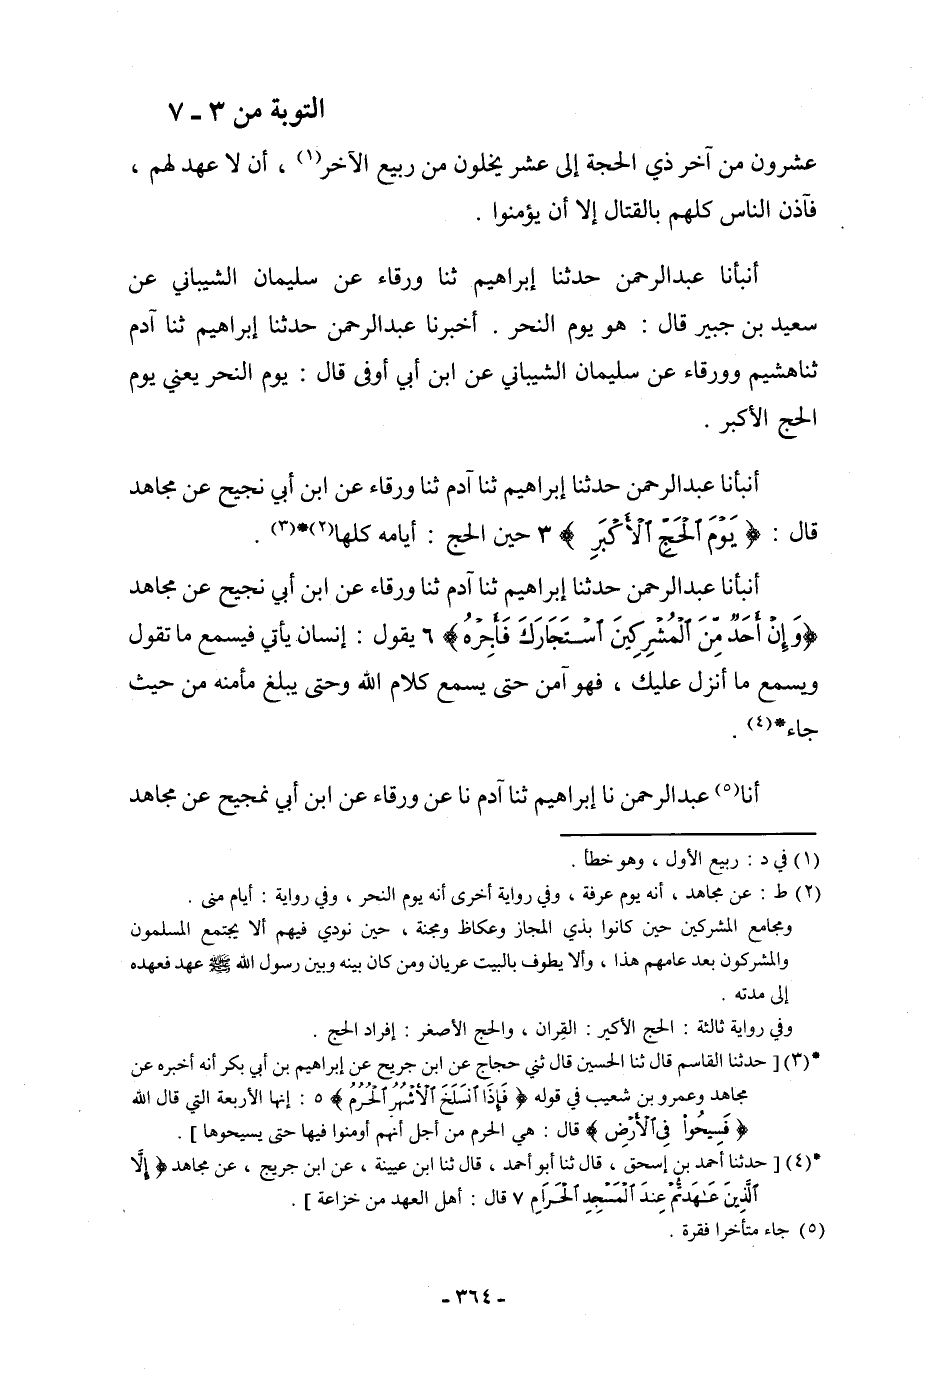 التوبة من ٣ ـ ٧
عشرون من آخر ذي الحجة إلى عشر يخلون من ربيع الآخر(١) ، أن لا عهد لهم ،
فآذن الناس كلهم بالقتال إلا أن يؤمنوا .
أنبأنا عبدالرحمن حدثنا إبراهيم ثنا ورقاء عن سليمان الشيباني عن
سعيد بن جبير قال : هو يوم النحر . أخبرنا عبدالرحمن حدثنا إبراهيم ثنا آدم
ثناهشيم وورقاء عن سليمان الشيباني عن ابن أبي أوفى قال : يوم النحر يعني يوم
الحج الأكبر .
أنبأنا عبدالرحمن حدثنا إبراهيم ثنا آدم ثنا ورقاء عن ابن أبي نجيح عن مجاهد
قال : ﴿ يَوْمَ ٱلْحَجِّ ٱلْأَكْبَرِ ﴾ ٣ حين الحج : أيامه كلها(٢)*(٣) .
أنبأنا عبدالرحمن حدثنا إبراهيم ثنا آدم ثنا ورقاء عن ابن أبي نجيح عن مجاهد
﴿وَإِنْ أَحَدٌ مِّنَ ٱلْمُشْرِكِينَ ٱسْتَجَارَكَ فَأَجِرْهُ﴾ ٦ يقول : إنسان يأتي فيسمع ما تقول
ويسمع ما أنزل عليك ، فهو آمن حتى يسمع كلام الله وحتى يبلغ مأمنه من حيث
جاء*(٤) .
أنا(٥) عبدالرحمن نا إبراهيم ثنا آدم نا عن ورقاء عن ابن أبي نمجيح عن مجاهد
(١) في د : ربيع الأول ، وهو خطأ .
(٢) ط : عن مجاهد ، أنه يوم عرفة ، وفي رواية أخرى أنه يوم النحر ، وفي رواية : أيام منى .
ومجامع المشركين حين كانوا بذي المجاز وعكاظ ومجنة ، حين نودي فيهم ألا يجتمع المسلمون
والمشركون بعد عامهم هذا ، وألا يطوف بالبيت عريان ومن كان بينه وبين رسول الله ﷺ عهد فعهده
إلى مدته .
وفي رواية ثالثة : الحج الأكبر : القِران ، والحج الأصغر : إفراد الحج .
*(٣) [ حدثنا القاسم قال ثنا الحسين قال ثني حجاج عن ابن جريج عن إبراهيم بن أبي بكر أنه أخبره عن
مجاهد وعمرو بن شعيب في قوله ﴿ فَإِذَا ٱنسَلَخَ ٱلْأَشْهُرُ ٱلْحُرُمُ ﴾ ٥ : إنها الأربعة التي قال الله
﴿ فَسِيحُوا۟ فِى ٱلْأَرْضِ ﴾ قال : هي الحرم من أجل أنهم أومنوا فيها حتى يسيحوها ] .
*(٤) [ حدثنا أحمد بن إسحق ، قال ثنا أبو أحمد ، قال ثنا ابن عيينة ، عن ابن جريج ، عن مجاهد ﴿ إِلَّا
ٱلَّذِينَ عَـٰهَدتُّمْ عِندَ ٱلْمَسْجِدِ ٱلْحَرَامِ ٧ قال : أهل العهد من خزاعة ] .
(٥) جاء متأخرا فقرة .
- ٣٦٤ -